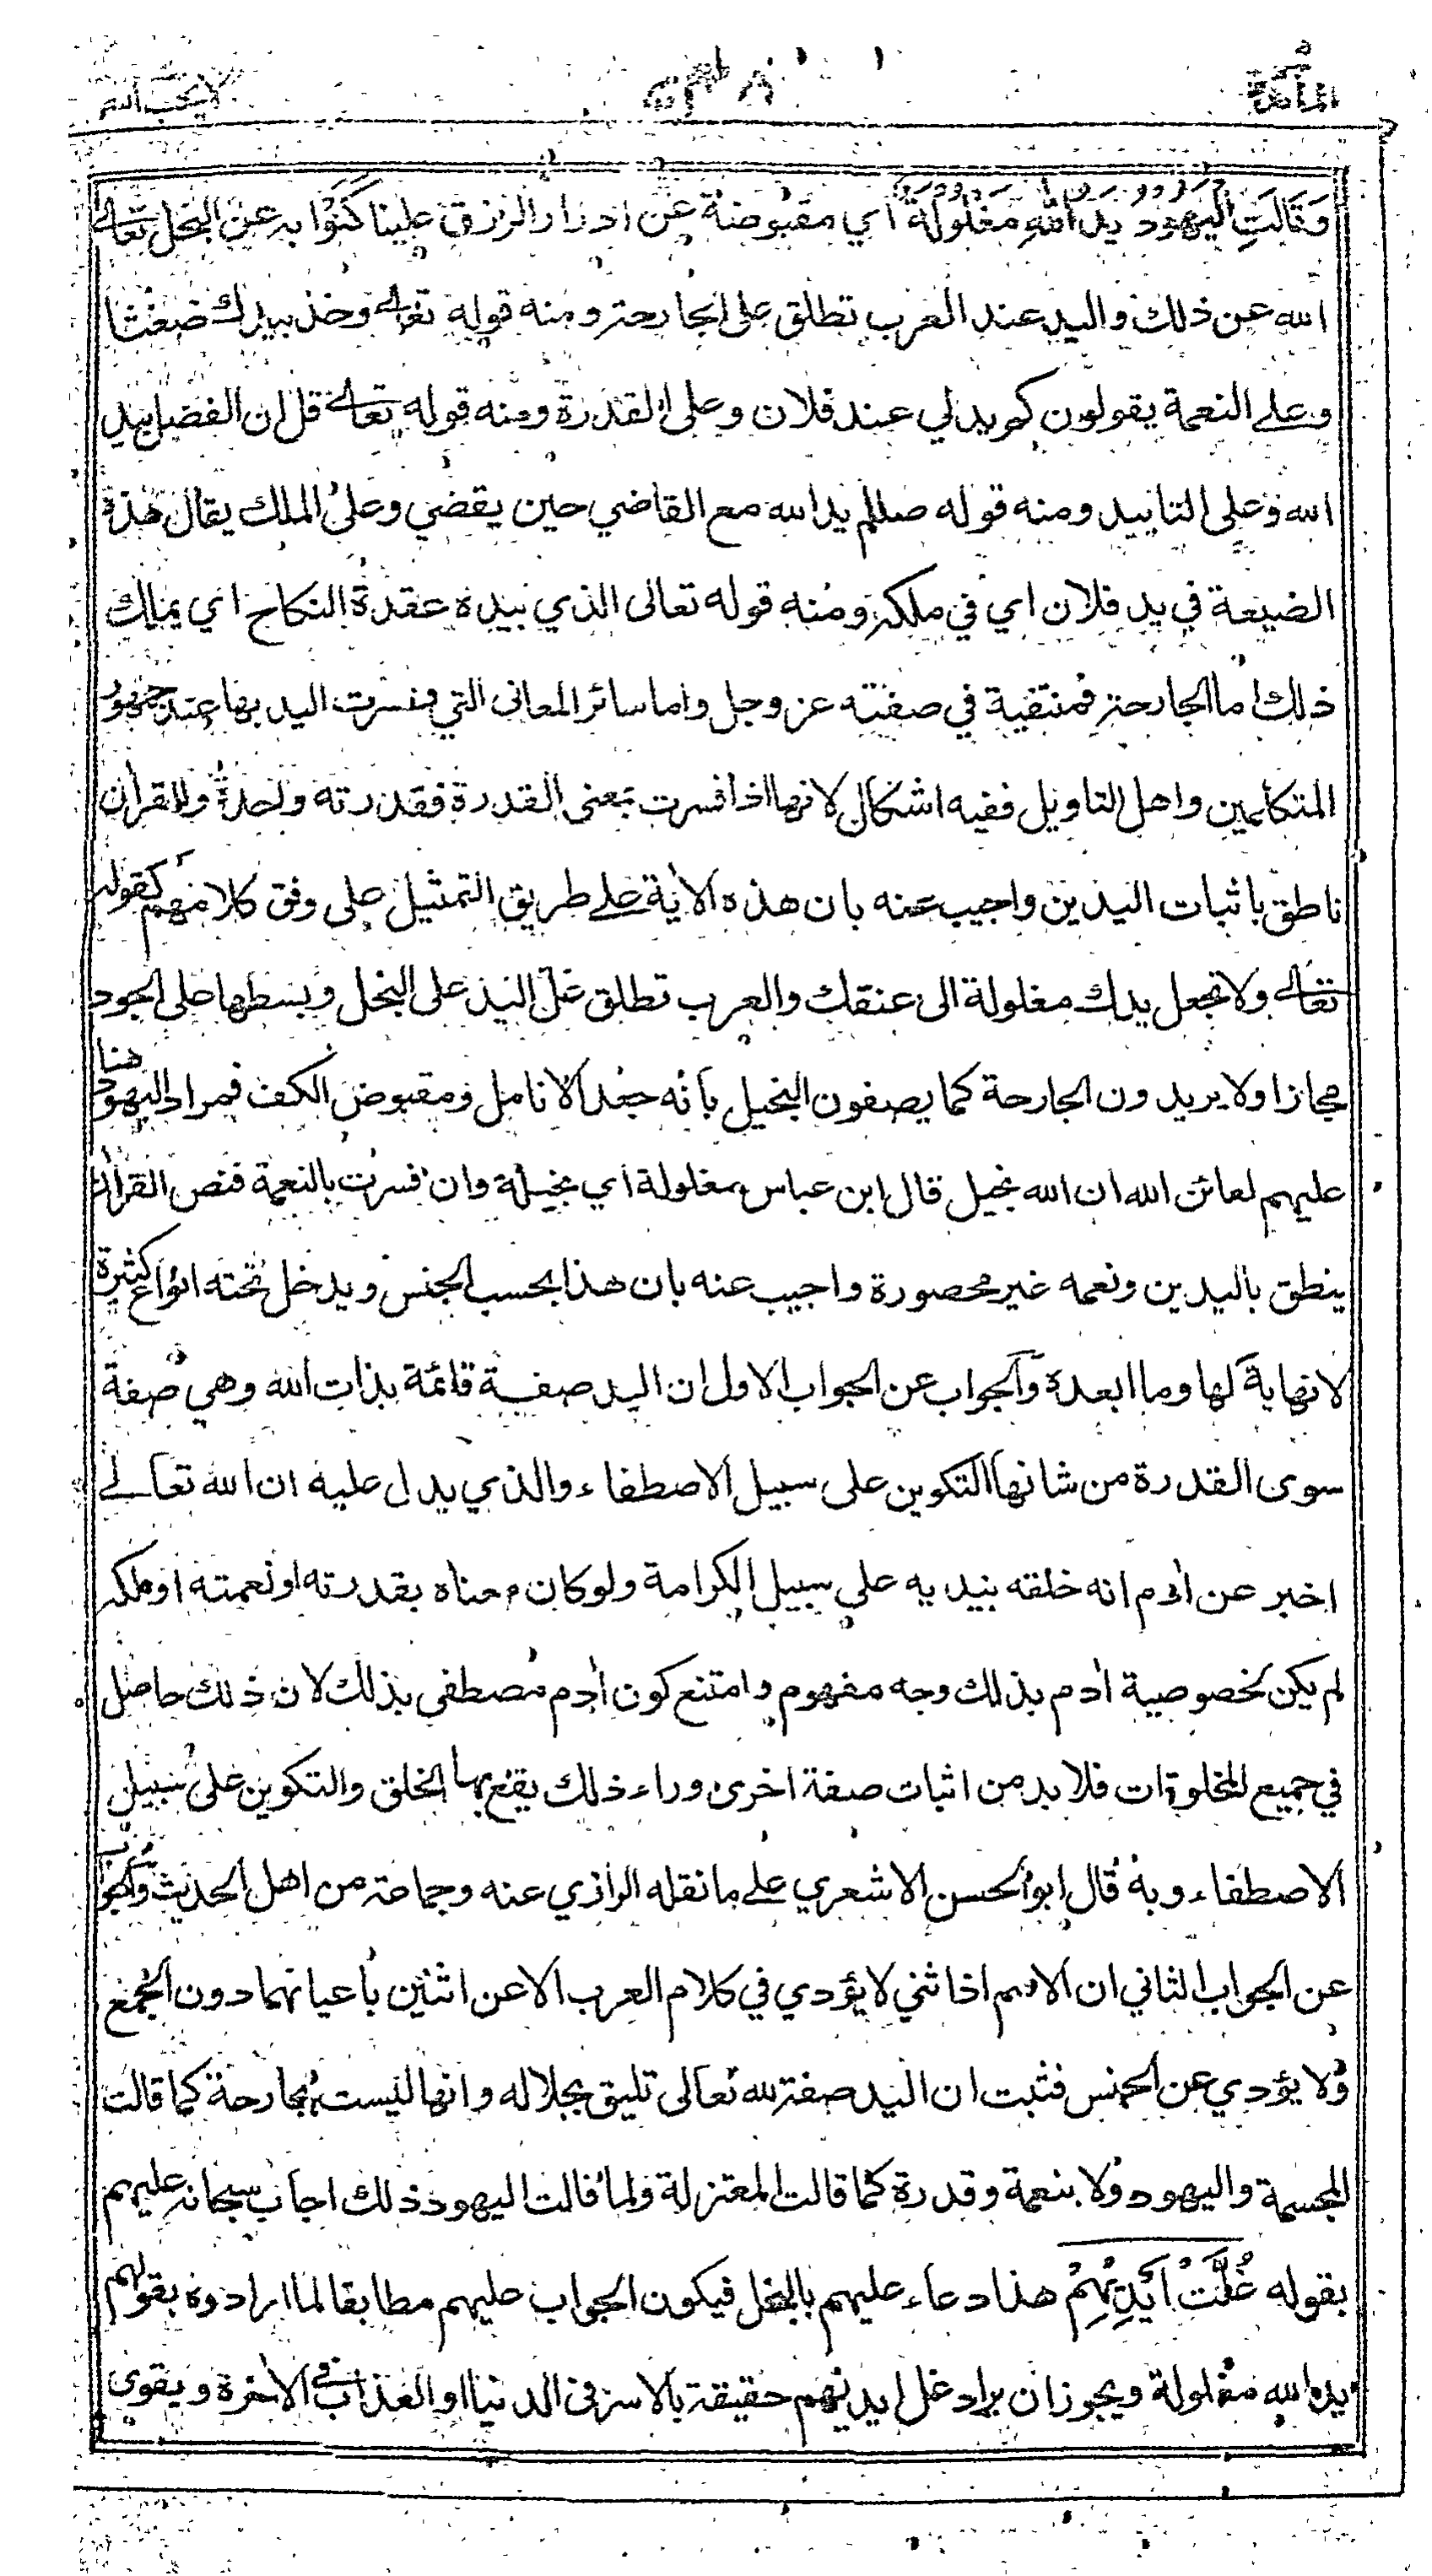 المائدة
لا يحب الله
وَقَالَتِ الْيَهُودُ يَدُ اللهِ مَغْلُولَةٌ أي مقبوضة عن ادرار الرزق علينا كنوا به عن البخل تعالى
الله عن ذلك واليد عند العرب تطلق على الجارحة ومنه قوله تعالى وخذ بيدك ضغثا
وعلى النعمة يقولون كم يد لي عند فلان وعلى القدرة ومنه قوله تعالى قل ان الفضل بيد
الله وعلى التاييد ومنه قوله صللم يد الله مع القاضي حين يقضي وعلى الملك يقال هذه
الضيعة في يد فلان اي في ملكه ومنه قوله تعالى الذي بيده عقدة النكاح اي يملك
ذلك اما الجارحة فمنتفية في صفته عز وجل واما سائر المعاني التي فسرت اليد بها عند جمهور
المتكلمين واهل التاويل ففيه اشكال لانها اذا فسرت بمعنى القدرة فقدرته واحدة والقران
ناطق باثبات اليدين واجيب عنه بان هذه الآية على طريق التمثيل على وفق كلامهم كقوله
تعالى ولا تجعل يدك مغلولة الى عنقك والعرب تطلق غل اليد على البخل وبسطها على الجود
مجازا ولا يريدون الجارحة كما يصفون البخيل بأنه جعد الانامل ومقبوض الكف فمراد اليهود هنا
عليهم لعائن الله ان الله بخيل قال ابن عباس مغلولة أي بخيلة وان فسرت بالنعمة فنص القران
ينطق باليدين ونعمه غير محصورة واجيب عنه بان هذا بحسب الجنس ويدخل تحته انواع كثيرة
لا نهاية لها وما ابعده والجواب عن الجواب الاول ان اليد صفة قائمة بذات الله وهي صفة
سوى القدرة من شانها التكوين على سبيل الاصطفاء والذي يدل عليه ان الله تعالى
اخبر عن ادم انه خلقه بيديه على سبيل الكرامة ولو كان معناه بقدرته او نعمته او ملكه
لم يكن لخصوصية أدم بذلك وجه مفهوم وامتنع كون أدم مصطفى بذلك لان ذلك حاصل
في جميع المخلوقات فلا بد من اثبات صفة اخرى وراء ذلك يقع بها الخلق والتكوين على سبيل
الاصطفاء وبه قال ابو الحسن الاشعري على ما نقله الرازي عنه وجماعة من اهل الحديث والجواب
عن الجواب الثاني ان الاسم اذا ثني لا يؤدي في كلام العرب الا عن اثنين بأعيانهما دون الجمع
ولا يؤدي عن الجنس فثبت ان اليد صفة لله تعالى تليق بجلاله وانها ليست بجارحة كما قالت
المجسمة واليهود ولا بنعمة وقدرة كما قالت المعتزلة ولما قالت اليهود ذلك اجاب سبحانه عليهم
بقوله غُلَّتْ أَيْدِيهِمْ هذا دعاء عليهم بالبخل فيكون الجواب عليهم مطابقا لما ارادوه بقولهم
يد الله مغلولة ويجوز ان يراد غل ايديهم حقيقة بالاسر في الدنيا او العذاب في الاخرة ويقوى